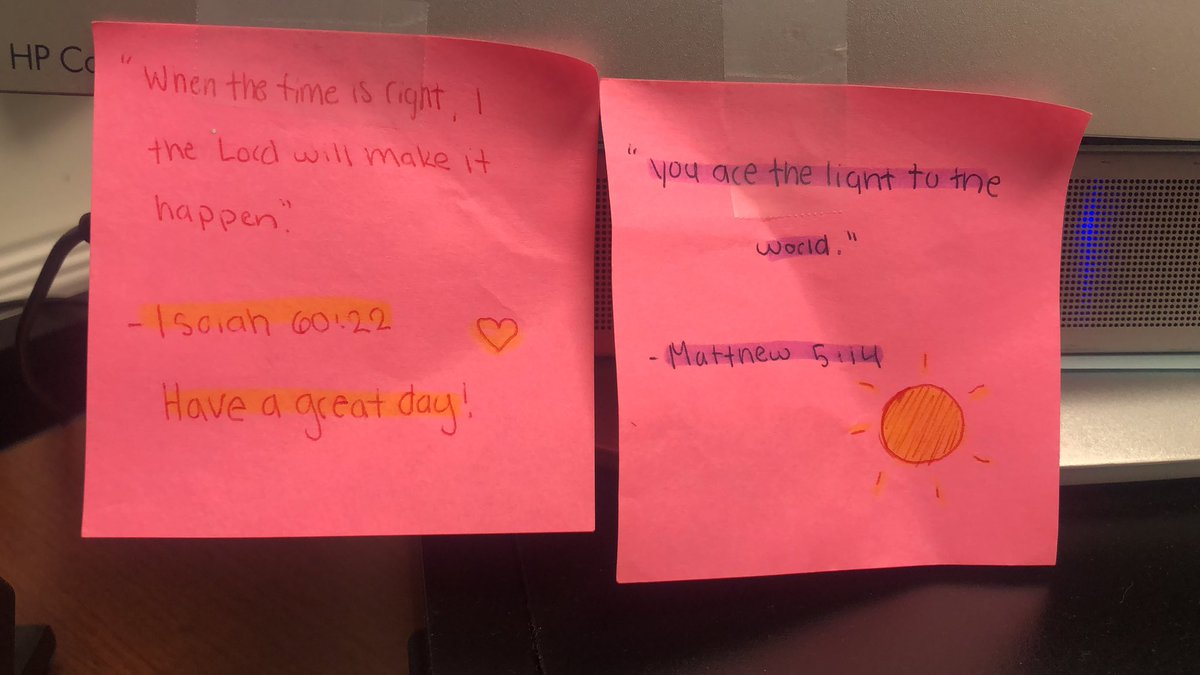 HP Co
"When the time is right, I
the Lord will make it
happen."
- Isaiah 60:22
Have a great day!
"you are the light to the
world."
- Matthew 5:14